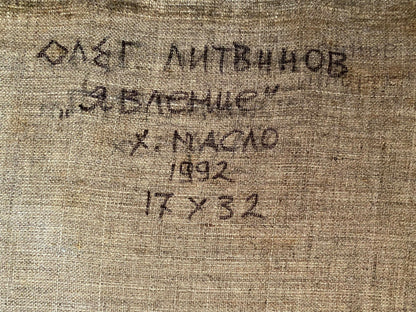 ОЛЕГ ЛИТВИНОВ
„ЯВЛЕНИЕ"
Х. МАСЛО
1992
17 х 32